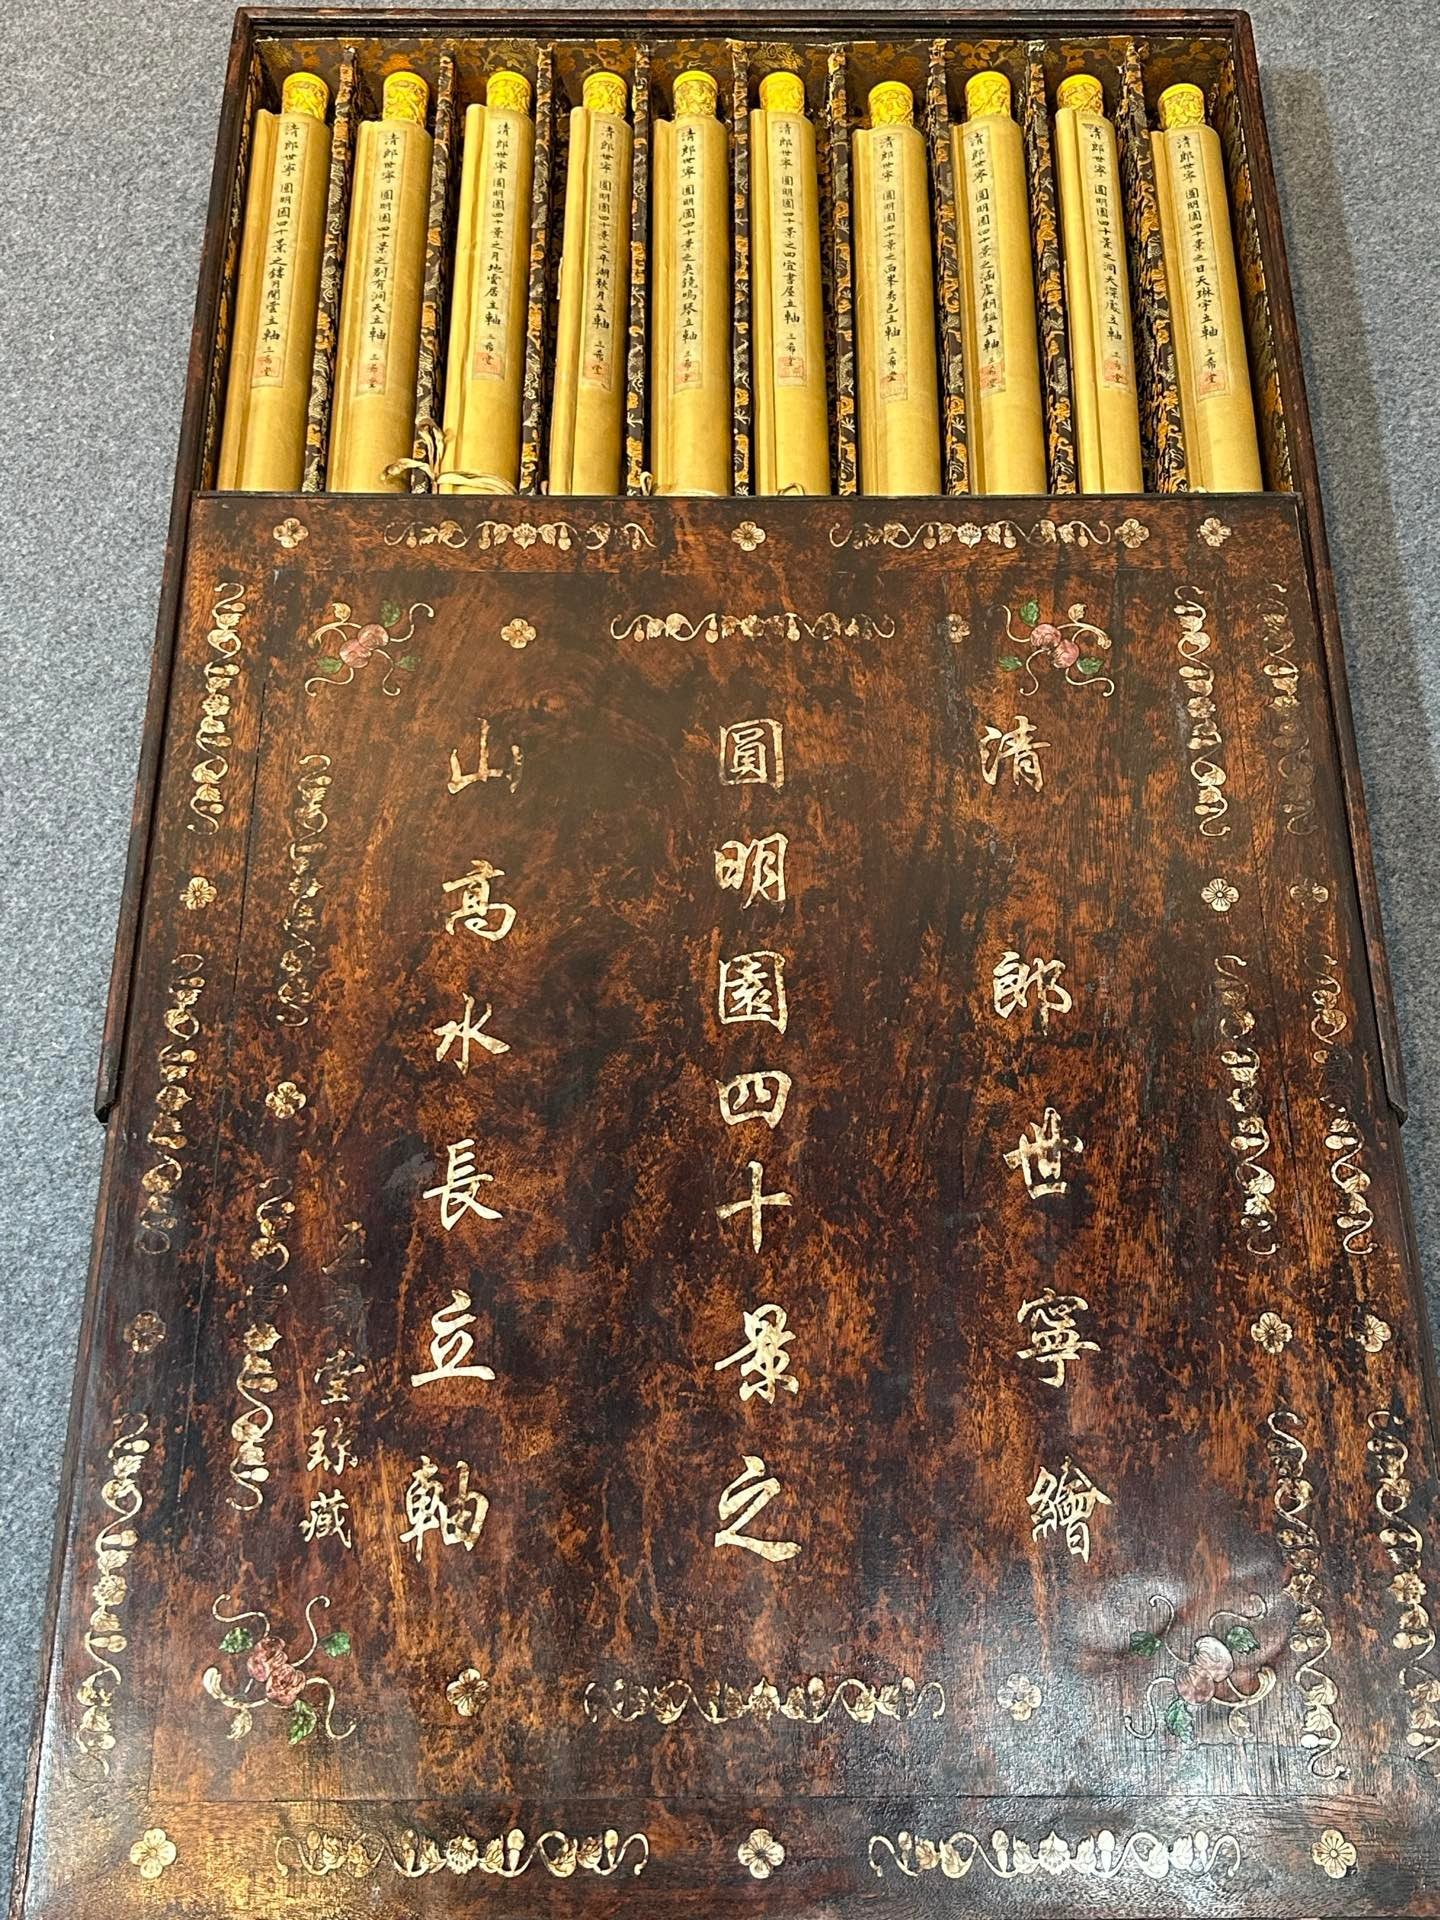 清郎世寧繪
圓明園四十景之
山高水長立軸
三希堂珍藏
清郎世寧 圓明園四十景之日天琳宇立軸 三希堂
清郎世寧 圓明園四十景之洞天深處立軸 三希堂
清郎世寧 圓明園四十景之涵虛朗鑑立軸 三希堂
清郎世寧 圓明園四十景之西峯秀色立軸 三希堂
清郎世寧 圓明園四十景之四宜書屋立軸 三希堂
清郎世寧 圓明園四十景之夾鏡鳴琴立軸 三希堂
清郎世寧 圓明園四十景之平湖秋月立軸 三希堂
清郎世寧 圓明園四十景之月地雲居立軸 三希堂
清郎世寧 圓明園四十景之別有洞天立軸 三希堂
清郎世寧 圓明園四十景之鏤月開雲立軸 三希堂